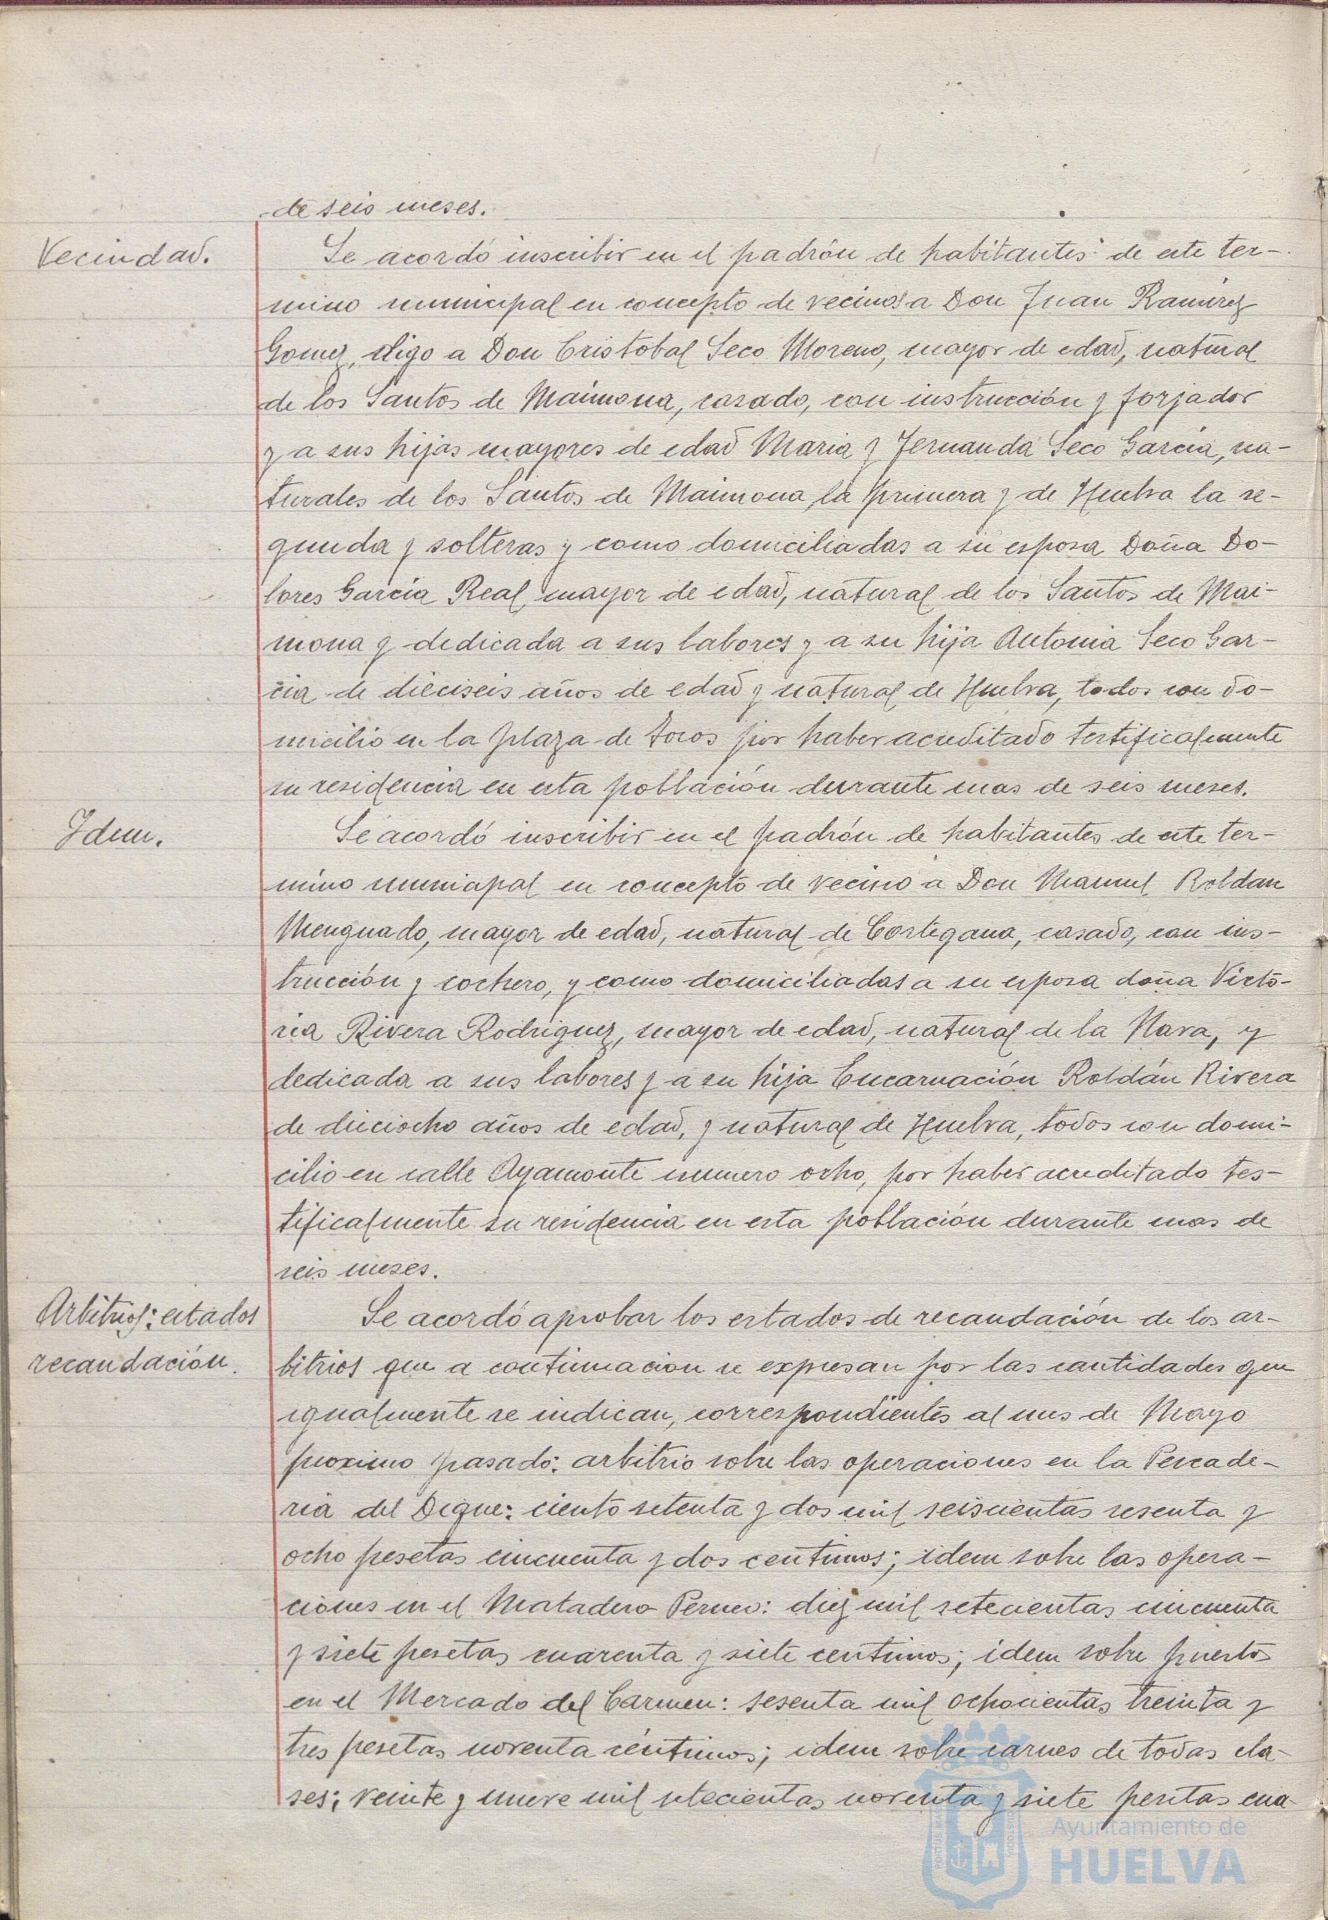 de seis meses.
Vecindad.
Se acordó inscribir en el padrón de habitantes de este ter-
mino municipal en concepto de vecinos a Don Juan Ramirez
Gomez, digo a Don Cristobal Seco Moreno, mayor de edad, natural
de los Santos de Maimona, casado, con instrucción y forjador
y a sus hijas mayores de edad Maria y Fernanda Seco García, na-
turales de los Santos de Maimona la primera y de Huelva la se-
gunda y solteras y como domiciliadas a su esposa Doña Do-
lores García Real, mayor de edad, natural de los Santos de Mai-
mona y dedicada a sus labores y a su hija Antonia Seco Gar-
cia de dieciseis años de edad y natural de Huelva, todos con do-
micilio en la plaza de Toros por haber acreditado testificalmente
su residencia en esta población durante mas de seis meses.
Idem.
Se acordó inscribir en el padrón de habitantes de este ter-
mino municipal en concepto de vecino a Don Manuel Roldan
Menguado, mayor de edad, natural de Cortegana, casado, con ins-
trucción y cochero, y como domiciliadas a su esposa doña Victo-
ria Rivera Rodriguez, mayor de edad, natural de la Nava, y
dedicada a sus labores y a su hija Encarnación Roldán Rivera
de dieciocho años de edad, y natural de Huelva, todos con domi-
cilio en calle Ayamonte numero ocho, por haber acreditado tes-
tificalmente su residencia en esta población durante mas de
seis meses.
Arbitrios: estados
recaudación.
Se acordó aprobar los estados de recaudación de los ar-
bitrios que a continuacion se expresan por las cantidades que
igualmente se indican, correspondientes al mes de Mayo
proximo pasado: arbitrio sobre las operaciones en la Pescade-
ria del Dique: ciento setenta y dos mil seiscientas sesenta y
ocho pesetas cincuenta y dos centimos; idem sobre las opera-
ciones en el Matadero Perneo: diez mil setecientas cincuenta
y siete pesetas cuarenta y siete centimos; idem sobre puestos
en el Mercado del Carmen: sesenta mil ochocientas treinta y
tres pesetas noventa céntimos; idem sobre carnes de todas cla-
ses; veinte y nueve mil setecientas noventa y siete pesetas cua-
Ayuntamiento de
HUELVA